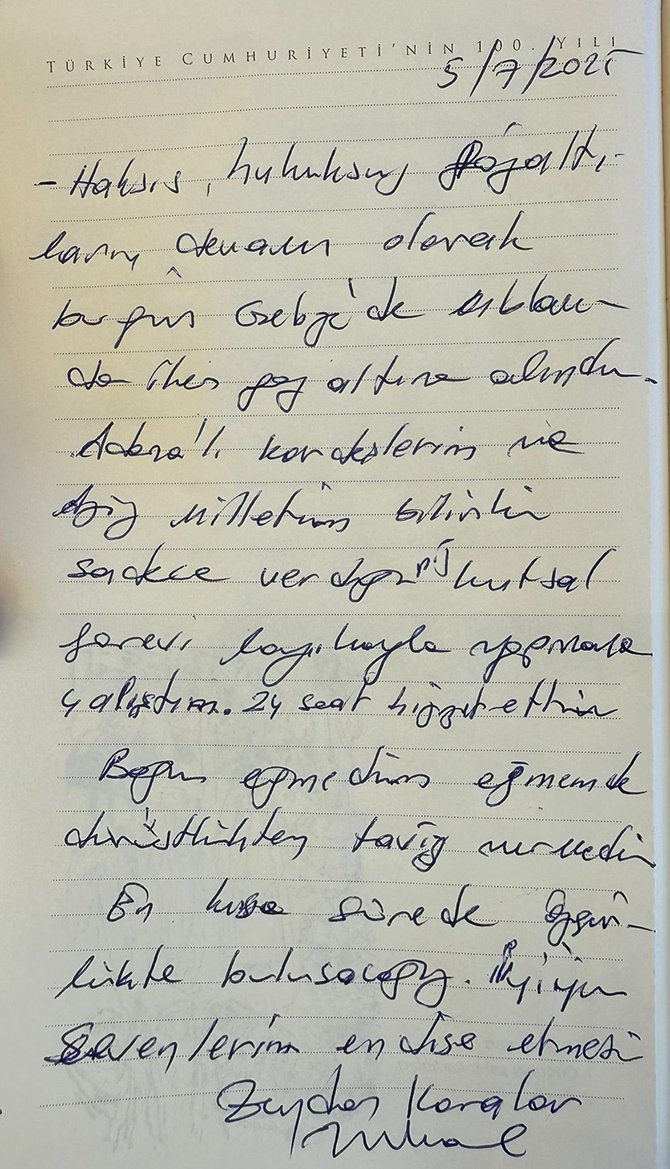 TÜRKİYE CUMHURİYETİ'NİN 100. YILI
5/7/2025
- Haksız, hukuksuz gözaltı-
ların devamı olarak
bugün Gebze'de ablukam-
da iken gözaltına alındım.
Adana'lı kardeşlerim ve
aziz milletim bilsin
sadece verdiğiniz kutsal
görevi layıkıyla yapmaya
çalıştım. 24 saat hizmet ettim
Boyun eğmedim eğmemde
dürüstlükten taviz vermedim
En kısa sürede özgür-
lükte buluşacağız. İyiyim
Sevenlerim endişe etmesin
Zeydan Karalar